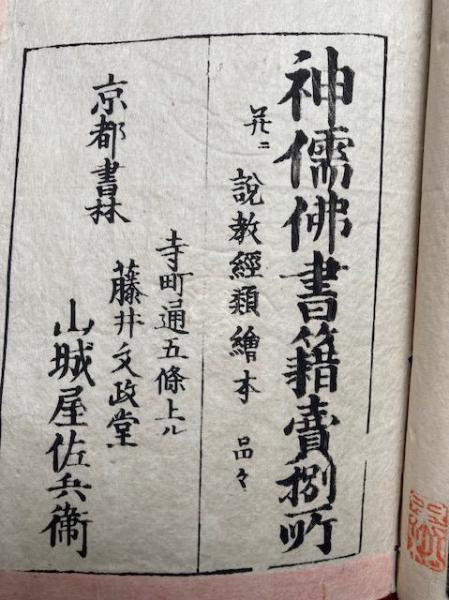 神儒佛書籍賣捌所
并ニ 說教經類繪本 品々
京都書林
寺町通五條上ル
藤井文政堂
山城屋佐兵衞